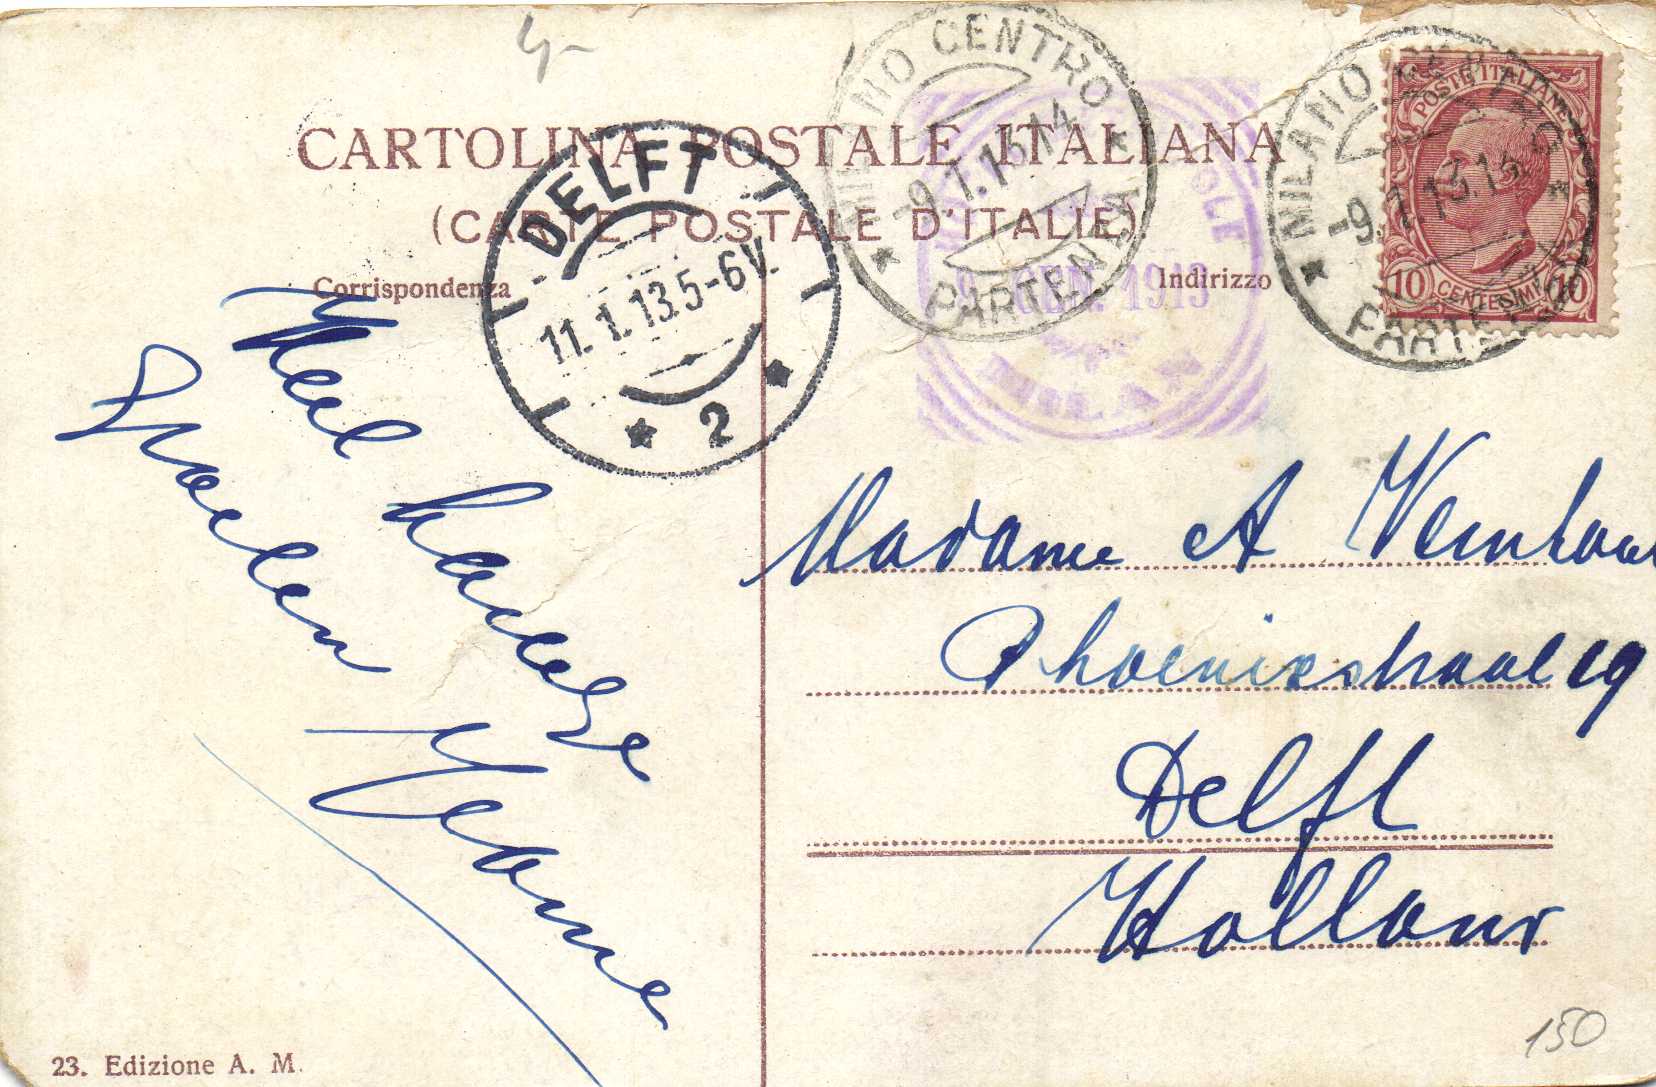 CARTOLINA POSTALE ITALIANA
(CARTE POSTALE D'ITALIE)
Corrispondenza
Indirizzo
DELFT
11.1.13.5-6V.
2
MILANO CENTRO
-9.1.13.14
PARTENZA
9 GEN. 1913
MILAN
MILANO
-9.1.13.
POSTE ITALIANE
10 CENTESIMI 10
Veel hartel
Groeten
Madame A
Phoenixstraat 19
Delft
Holland
23. Edizione A. M.
150